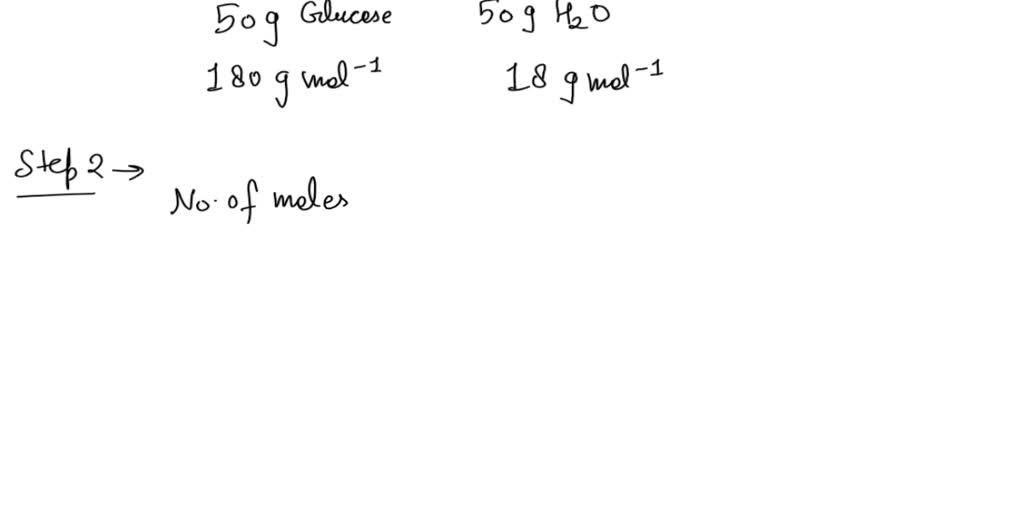 50g Glucose 50g H₂O
180 g mol⁻¹ 18 g mol⁻¹
Step 2 →
No. of moles